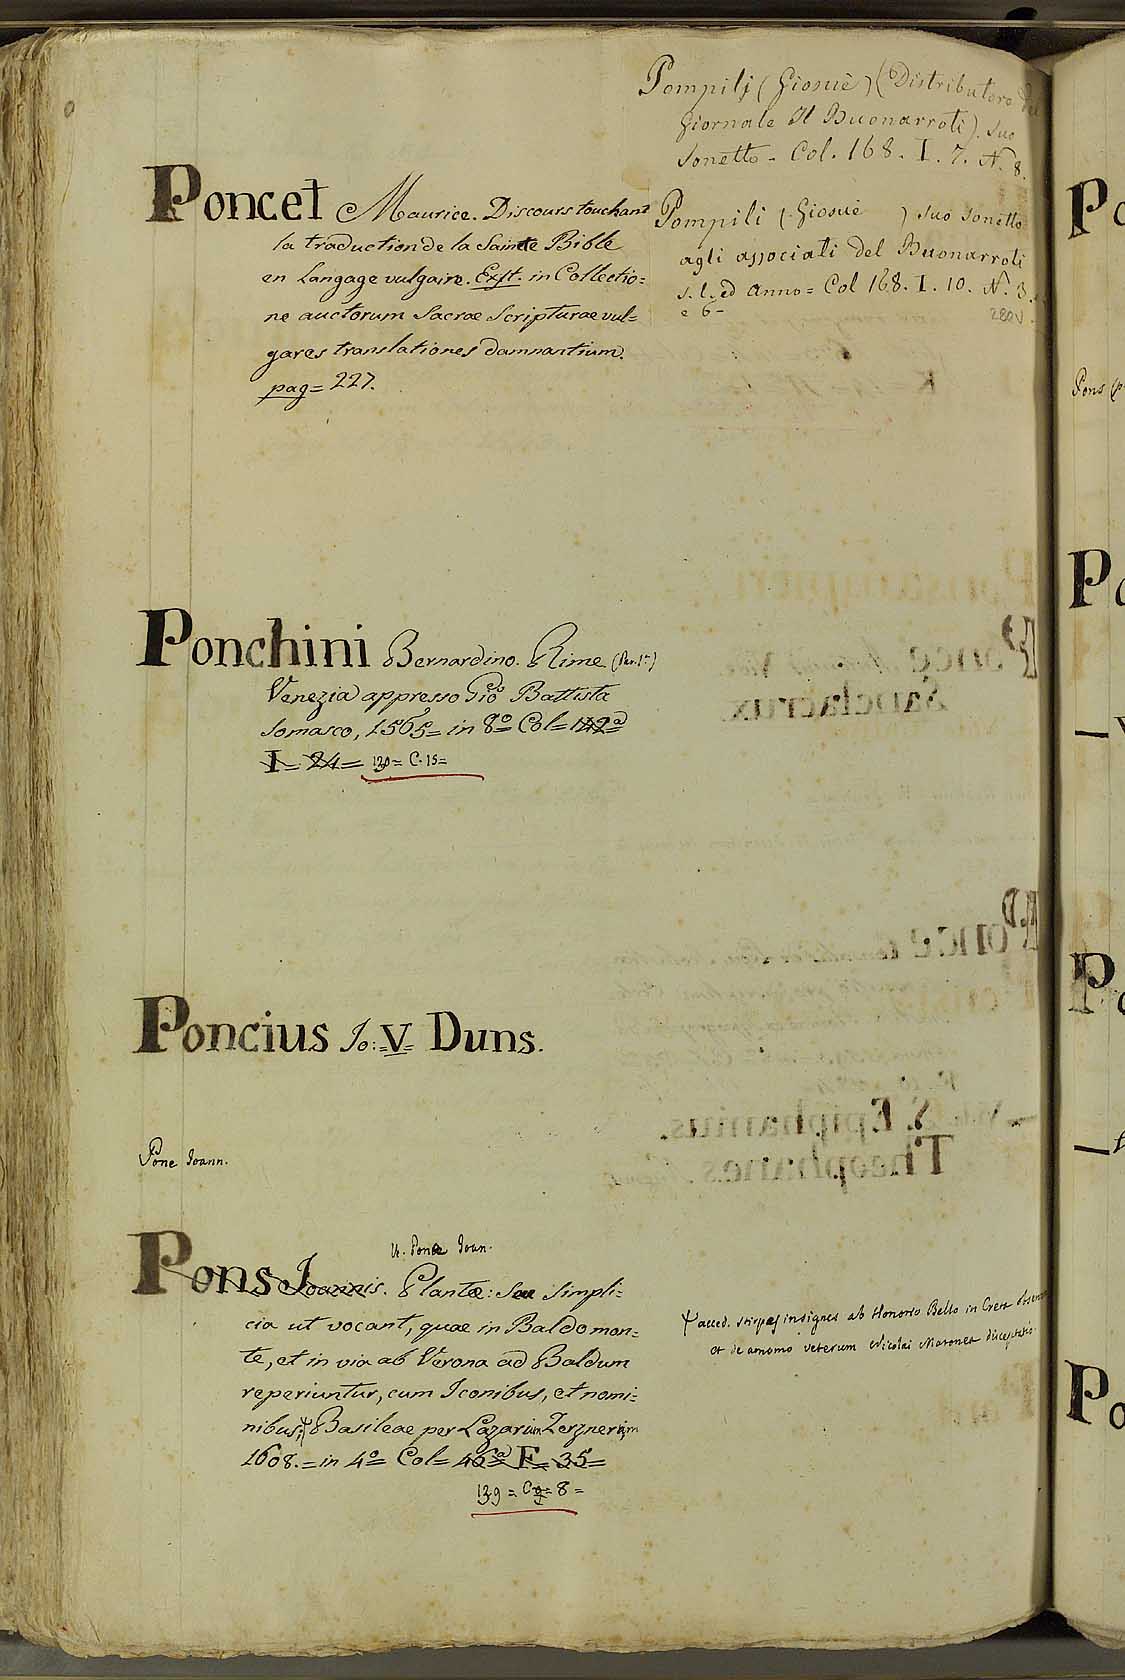 Pompilj (Giosuè) (Distributore del
Giornale Il Buonarroti). Suo
Sonetto - Col. 168. I. 7. N. 8.
Poncet Maurice. Discours touchant
la traduction de la Sainte Bible
en Langage vulgaire. Exst. in Collectio=
ne auctorum Sacrae Scripturae vul=
gares translationes damnantium.
pag = 227.
Pompili (Giosuè ) suo Sonetto
agli associati del Buonarroti
s. l. ed anno = Col 168. I. 10. N. 3.
e 6 -
280V
Ponchini Bernardino. Rime (Par. 1ª)
Venezia appresso Gio Battista
Somasco, 1565 = in 8º Col = 142ª
I = 24 = 130 = C. 15 =
Poncius Jo: = V = Duns.
Pone Joann.
V. Pone Joan.
Pons Joannis. Plantae: Seu Simpli=
cia ut vocant, quae in Baldo mon=
te, et in via ab Verona ad Baldum
reperiuntur, cum Iconibus, et nomi=
nibus; Basileae per Lazarum Zerznerum
1608. = in 4º = Col = 46ª F = 35 =
139 = C = 8 =
acced. stirpes insignes ab Honorio Bello in Creta
et de amomo veterum Nicolai Maronea
Pons